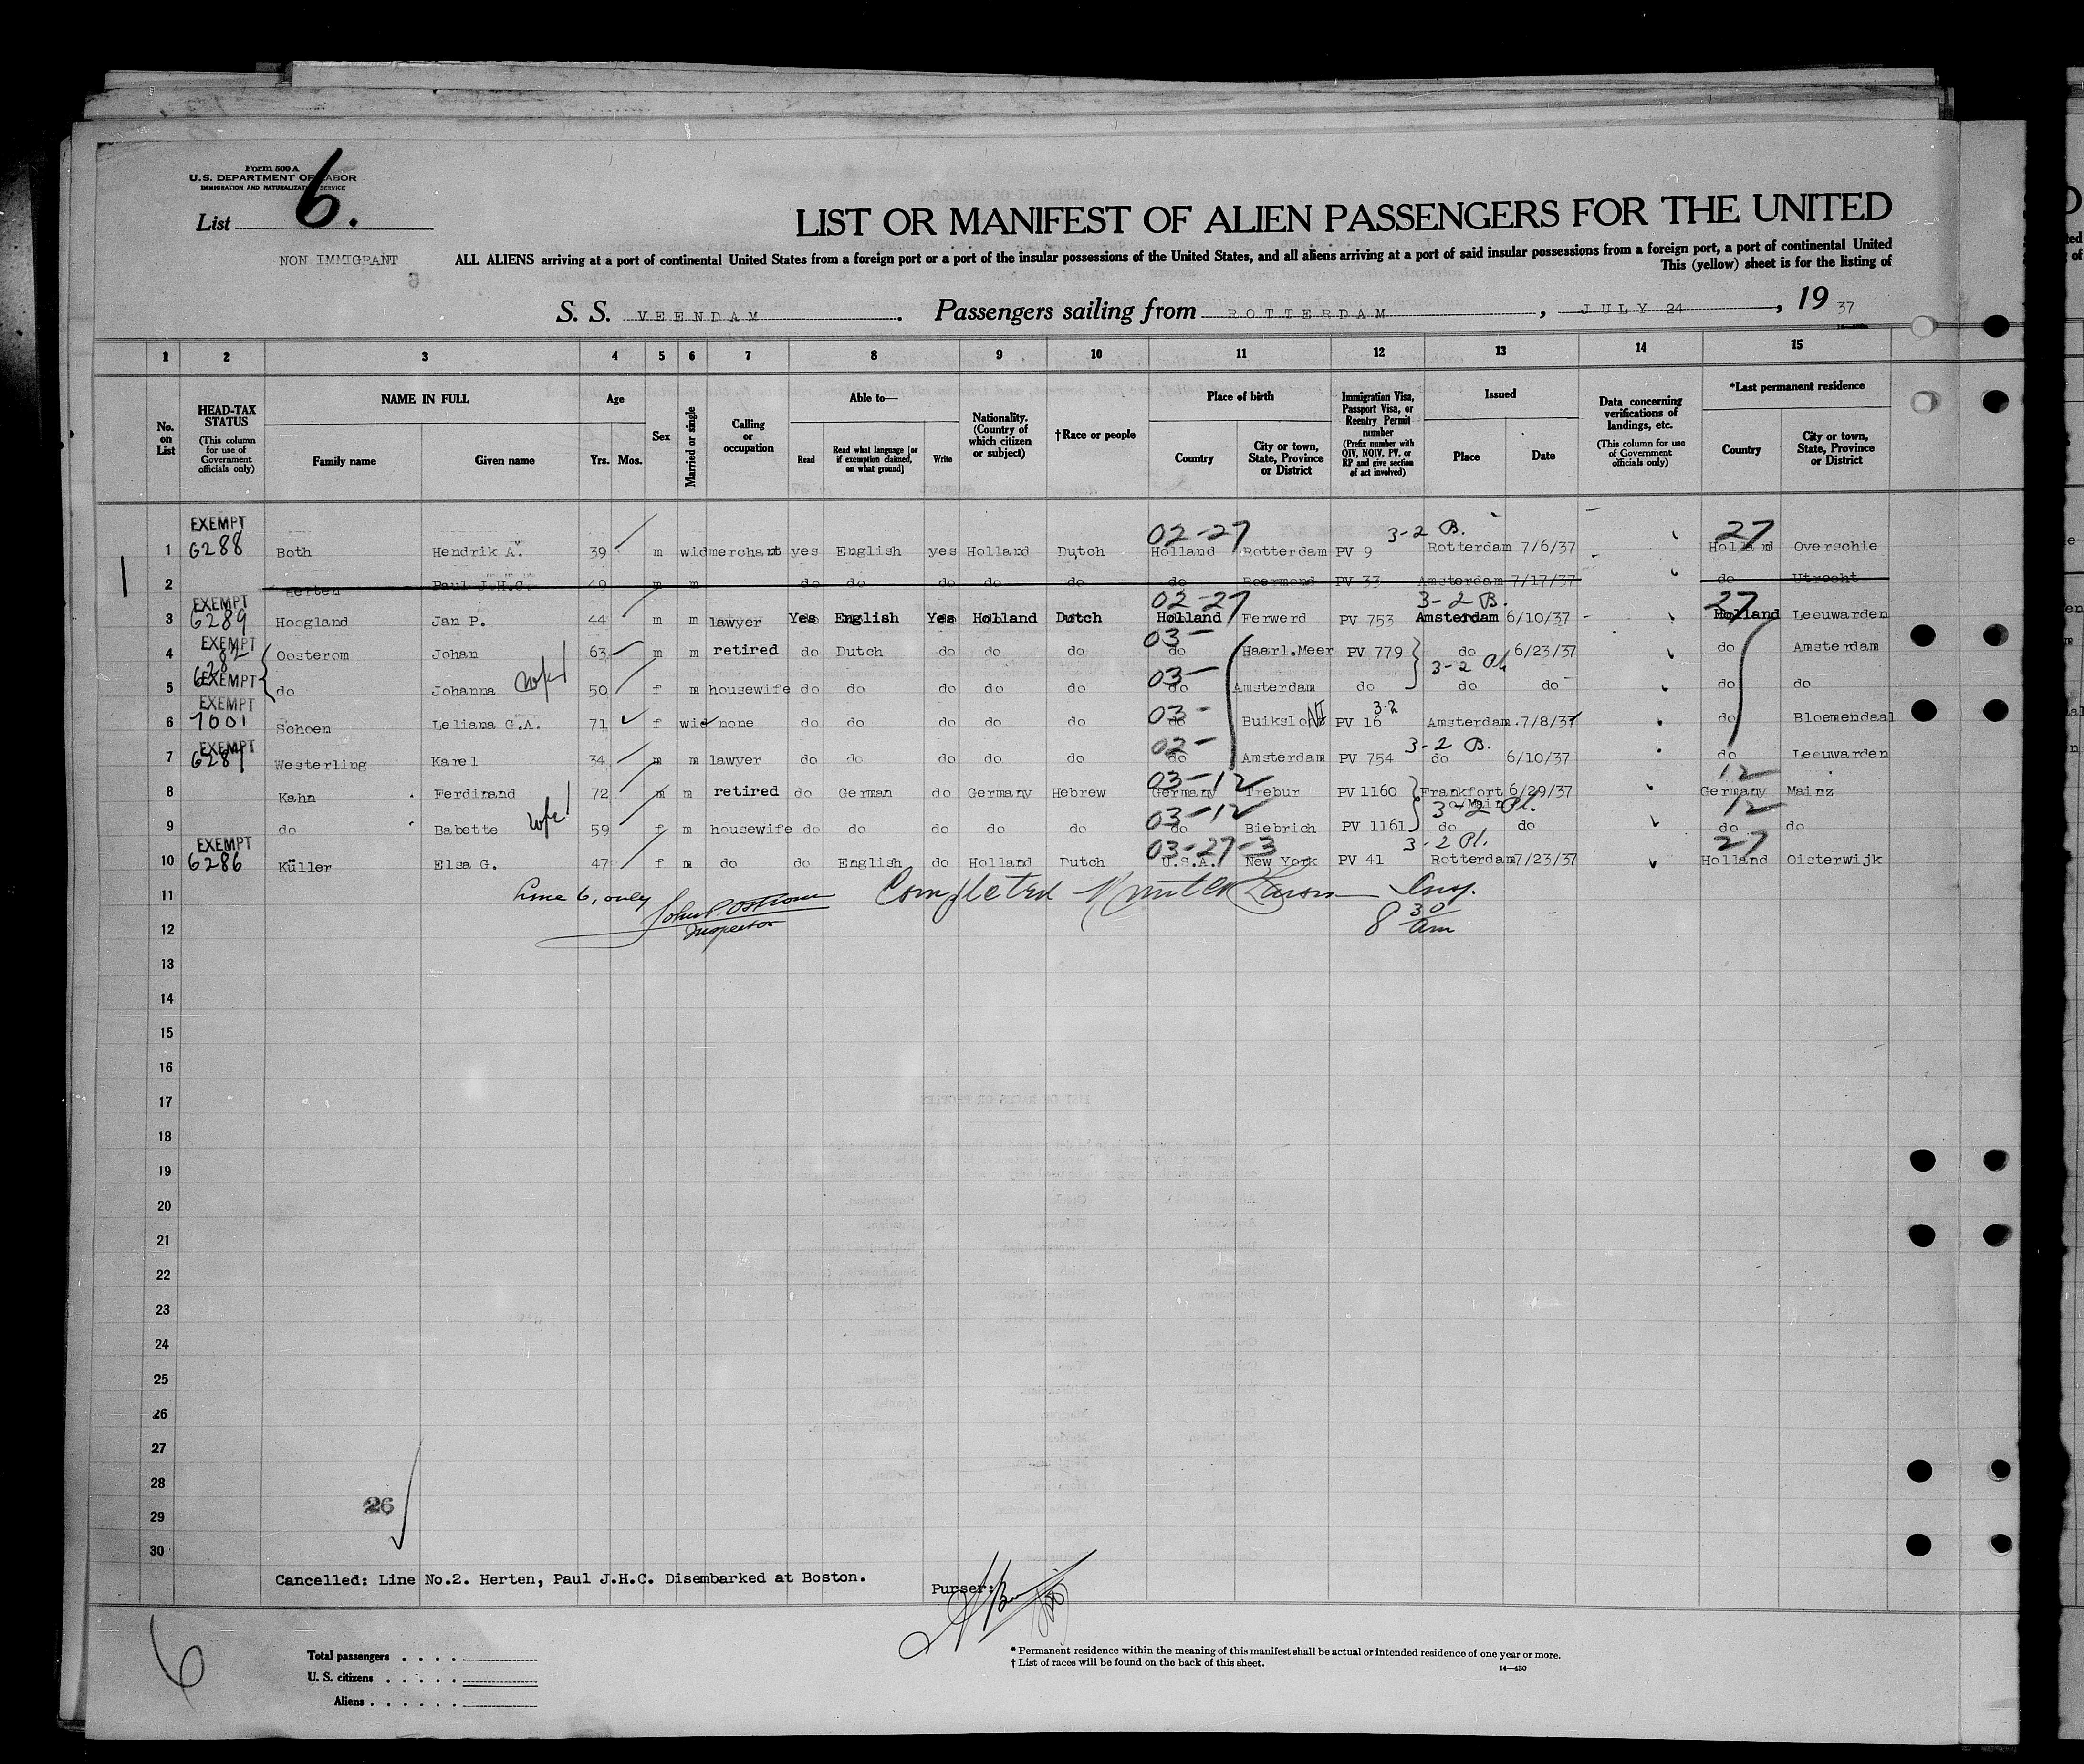 Form 500 A
U.S. DEPARTMENT OF LABOR
IMMIGRATION AND NATURALIZATION SERVICE
List 6.
NON IMMIGRANT
LIST OR MANIFEST OF ALIEN PASSENGERS FOR THE UNITED
ALL ALIENS arriving at a port of continental United States from a foreign port or a port of the insular possessions of the United States, and all aliens arriving at a port of said insular possessions from a foreign port, a port of continental United
This (yellow) sheet is for the listing of
S. S. VEENDAM . Passengers sailing from ROTTERDAM , JULY 24 , 19 37
1 2 3 4 5 6 7 8 9 10 11 12 13 14 15
No. on List
HEAD-TAX STATUS (This column for use of Government officials only)
NAME IN FULL
Family name Given name
Age
Yrs. Mos.
Sex
Married or single
Calling or occupation
Able to—
Read Read what language [or if exemption claimed, on what ground] Write
Nationality. (Country of which citizen or subject)
†Race or people
Place of birth
Country City or town, State, Province or District
Immigration Visa, Passport Visa, or Reentry Permit number (Prefix number with QIV, NQIV, PV, or RP and give section of act involved)
Issued
Place Date
Data concerning verifications of landings, etc. (This column for use of Government officials only)
*Last permanent residence
Country City or town, State, Province or District
EXEMPT 02-27 3-2 B. 27
1 6288 Both Hendrik A. 39 m wid merchant yes English yes Holland Dutch Holland Rotterdam PV 9 Rotterdam 7/6/37 Holland Overschie
2 Herten Paul J.H.C. 49 m m do do do do do do Roermond PV 33 Amsterdam 7/17/37 do Utrecht
EXEMPT 02-27 3-2 B. 27
3 6289 Hoogland Jan P. 44 m m lawyer Yes English Yes Holland Dutch Holland Ferwerd PV 753 Amsterdam 6/10/37 Holland Leeuwarden
EXEMPT 03-
4 Oosterom Johan 63 m m retired do Dutch do do do do Haarl.Meer PV 779 do 6/23/37 do Amsterdam
EXEMPT 03- 3-2 Pl.
5 do Johanna wife 50 f m housewife do do do do do do Amsterdam do do do do do
EXEMPT 03- 3-2
6 7001 Schoen Leliana G.A. 71 f wid none do do do do do do PV 16 Amsterdam 7/8/37 do Bloemendaal
EXEMPT 02- 3-2 B.
7 6287 Westerling Karel 34 m m lawyer do do do do do do Amsterdam PV 754 do 6/10/37 do Leeuwarden
03-12 12
8 Kahn Ferdinand 72 m m retired do German do Germany Hebrew Germany Trebur PV 1160 Frankfort o/Main 6/29/37 Germany Mainz
03-12 3-2 Pl. 12
9 do Babette wife 59 f m housewife do do do do do do Biebrich PV 1161 do do do do
EXEMPT 03-27-3 3-2 Pl. 27
10 6286 Küller Elsa G. 47 f m do do English do Holland Dutch U.S.A. New York PV 41 Rotterdam 7/23/37 Holland Oisterwijk
11 Line 6, only Completed Insp.
12 Inspector 8 30 am
13
14
15
16
17
18
19
20
21
22
23
24
25
26
27
28
26
29
30
Cancelled: Line No.2. Herten, Paul J.H.C. Disembarked at Boston.
Purser:
6
Total passengers
U. S. citizens
Aliens
* Permanent residence within the meaning of this manifest shall be actual or intended residence of one year or more.
† List of races will be found on the back of this sheet.
14—430